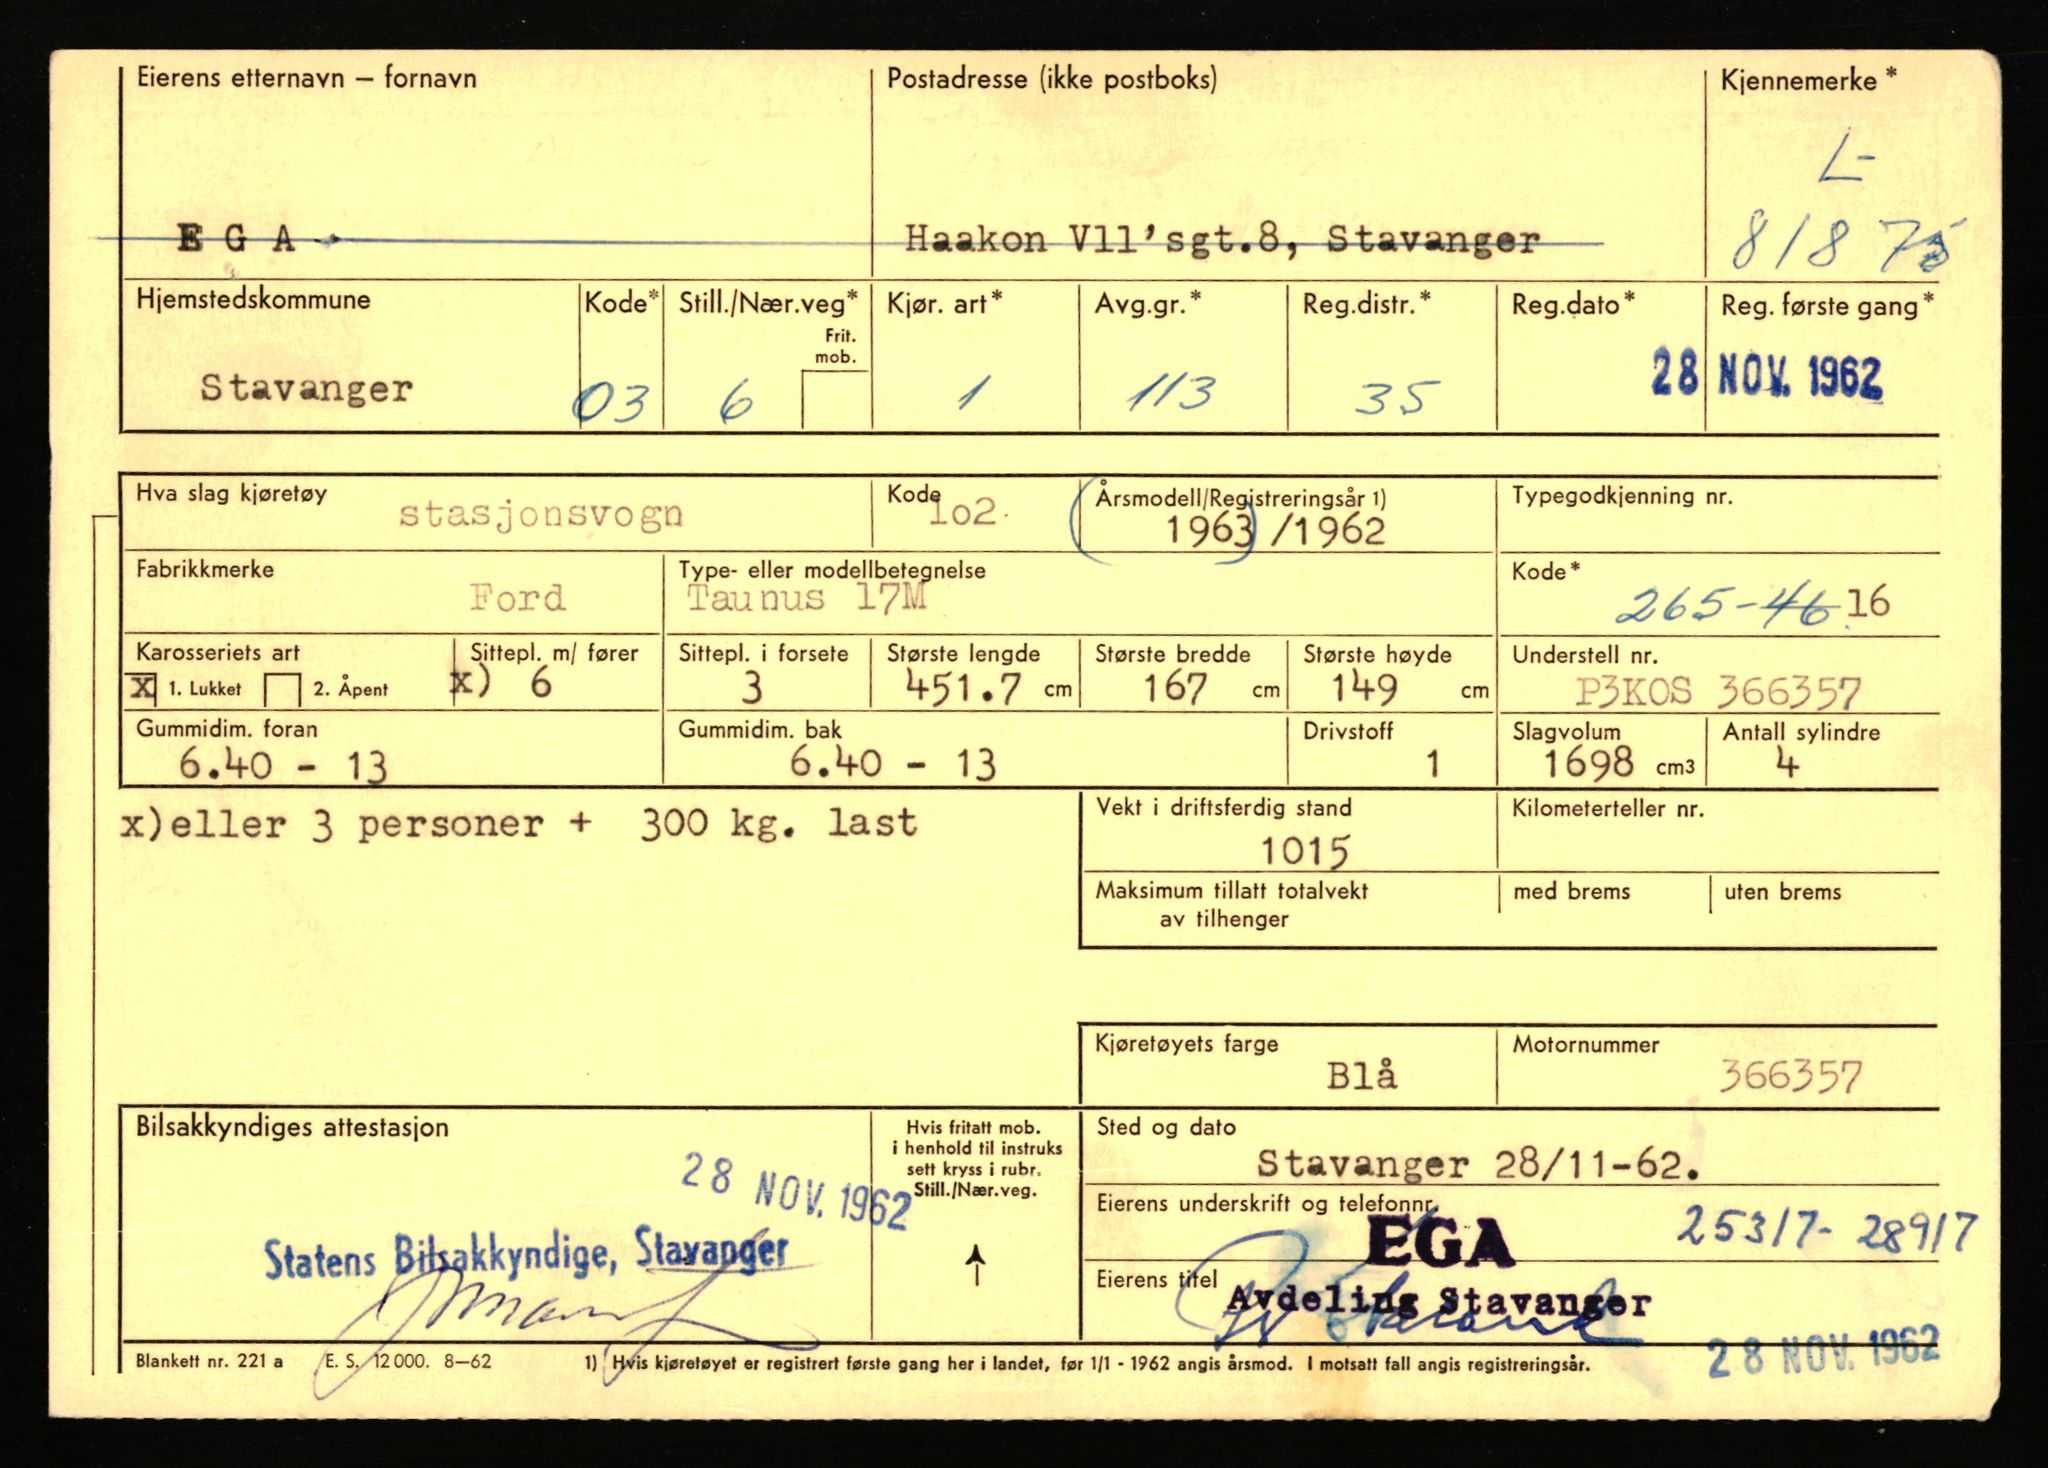 Eierens etternavn – fornavn
Postadresse (ikke postboks)
Kjennemerke*
L-
E G A
Haakon V11'sgt.8, Stavanger
8187
Hjemstedskommune
Kode*
Still./Nær.veg*
Frit. mob.
Kjør. art*
Avg.gr.*
Reg.distr.*
Reg.dato*
Reg. første gang*
Stavanger
03
6
1
113
35
28 NOV. 1962
Hva slag kjøretøy
stasjonsvogn
Kode
1o2
Årsmodell/Registreringsår 1)
(1963) /1962
Typegodkjenning nr.
Fabrikkmerke
Ford
Type- eller modellbetegnelse
Taunus 17M
Kode*
265-46 16
Karosseriets art
X 1. Lukket 2. Åpent
Sittepl. m/ fører
x) 6
Sittepl. i forsete
3
Største lengde
451.7 cm
Største bredde
167 cm
Største høyde
149 cm
Understell nr.
P3KOS 366357
Gummidim. foran
6.40 - 13
Gummidim. bak
6.40 - 13
Drivstoff
1
Slagvolum
1698 cm3
Antall sylindre
4
x)eller 3 personer + 300 kg. last
Vekt i driftsferdig stand
1015
Kilometerteller nr.
Maksimum tillatt totalvekt
av tilhenger
med brems
uten brems
Kjøretøyets farge
Blå
Motornummer
366357
Bilsakkyndiges attestasjon
28 NOV. 1962
Statens Bilsakkyndige, Stavanger
Hvis fritatt mob.
i henhold til instruks
sett kryss i rubr.
Still./Nær.veg.
Sted og dato
Stavanger 28/11-62.
Eierens underskrift og telefonnr.
EGA
25317- 28917
Eierens titel
Avdeling Stavanger
28 NOV. 1962
Blankett nr. 221 a E. S. 12000. 8–62
1) Hvis kjøretøyet er registrert første gang her i landet, før 1/1 - 1962 angis årsmod. I motsatt fall angis registreringsår.